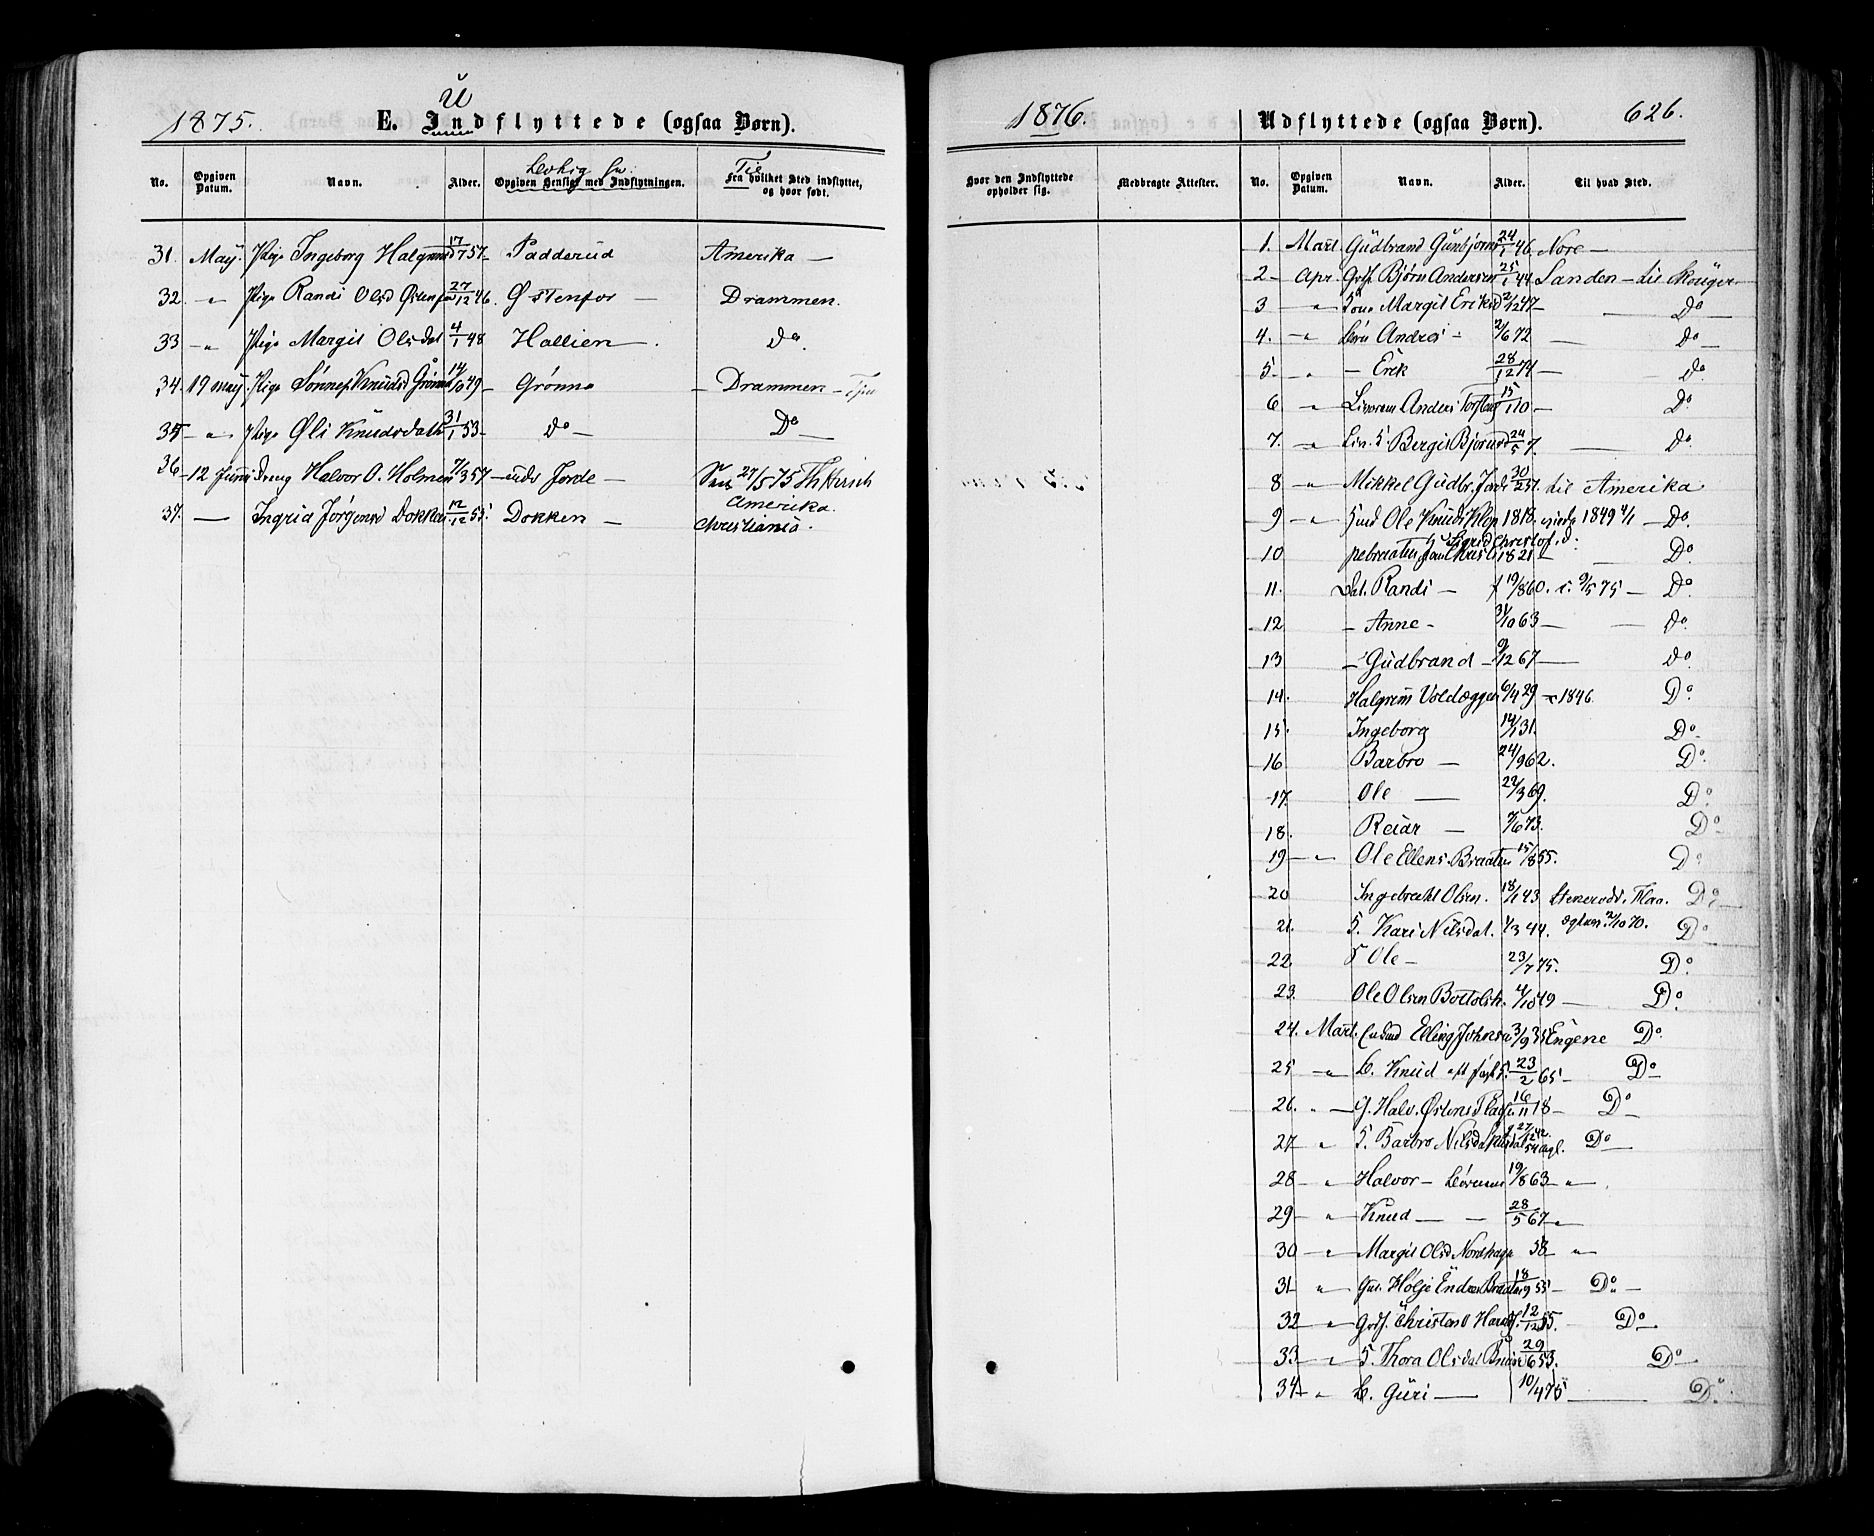 1875. U
E. Indflyttede (ogsaa Børn).
No. Opgiven Datum. Navn. Alder. Opgiven Hensigt med Indflytningen. Til Fra hvilket Sted indflyttet, og hvor født.
31. Maj. Pige Ingeborg 17/7 57 - Padderud Amerika —
32. " Pige Randi Olsd 27/12 46. Østenfor — Drammen.
33 " Pige Margit Olsdat 4/1 48 Hallien — Do
34. 19 maj Pige Sønnef Knudsd 14/10 49 - Grønna - Drammen -
35 - " Pige Øli Knudsdat 31/1 53 - Do - Do
36 - 12 Juni Dreng Halvor O. Holmen 7/3 57 - Jorde - 27/5 75
Amerika.
37. — Ingrid Jørgensd Dokken 12/12 55 Dokken — Christiania.
1876. Udflyttede (ogsaa Børn). 626.
Hvor den Indflyttede opholder sig. Medbragte Attester. No. Opgiven Datum. Navn. Alder. Til hvad Sted.
1. Mart Gudbrand Gunbjørns 24/1 46 Nore —
2 - Apr. Bjørn Andersen 25/1 44 Sanden - til Skauger
3 " Margit Eriksd 2/12 47 - Do
4. - " Børn Andres - 2/6 72 — Do
5. " - Erik 28/12 74 — Do
6 - " Anders 15/1 10 - Do
7. - " 5 Bergit Bjørnsd 24/5 7. — Do
8 - " Mikkel Gudbr. Jorde 30/2 51. til Amerika
9 - " Ole Knuds 1818. 1849 - Do.
Sigrid Christof. d.
10 1821 - Do
11. Dat. Randi — f 19/8 60. 9/5 75 — Do.
12 - Anne - 31/10 63 — Do.
13 - Gudbrand - 9/12 67 — Do.
14. Halgrim Voldeggen 6/4 29 1846. Do.
15. Ingeborg 14/1 31. Do.
16 Barbro — 24/9 62. Do.
17 Ole — 22/3 69. Do.
18. Reiar — 7/6 73. Do
19 — " Ole Ellens. Braaten 15/8 55. Do
20 Ingebrecht Olsen. 18/1 43 Flaa. Do
21. 5. Kari Nilsdat. 1/3 44. 10 70. Do
22 5 Ole - 23/7 75. Do.
23 Ole Olsen 4/10 49 — Do.
24. Mart. Elling Johnsen 3/9 35 Engene Do.
25 - " b. Knud 23/2 65 - Do
26. " — G. Halv. Østens 16/11 18 - Do
27 " 5. Barbro Nilsdat 27/12 42. Do
28 - " - Halvor - 19/8 63 - "
29 - " - Knud — 28/5 67 "
30 - " - Margit Olsd 58 "
31 " Holje Endres. Braaten 18/9 55 - Do -
32 " Christen O 12/12 55. - Do
33 - " 5. Thora Olsdat 29/6 53. Do
34 - " b. Guri — 10/4 75 — Do.